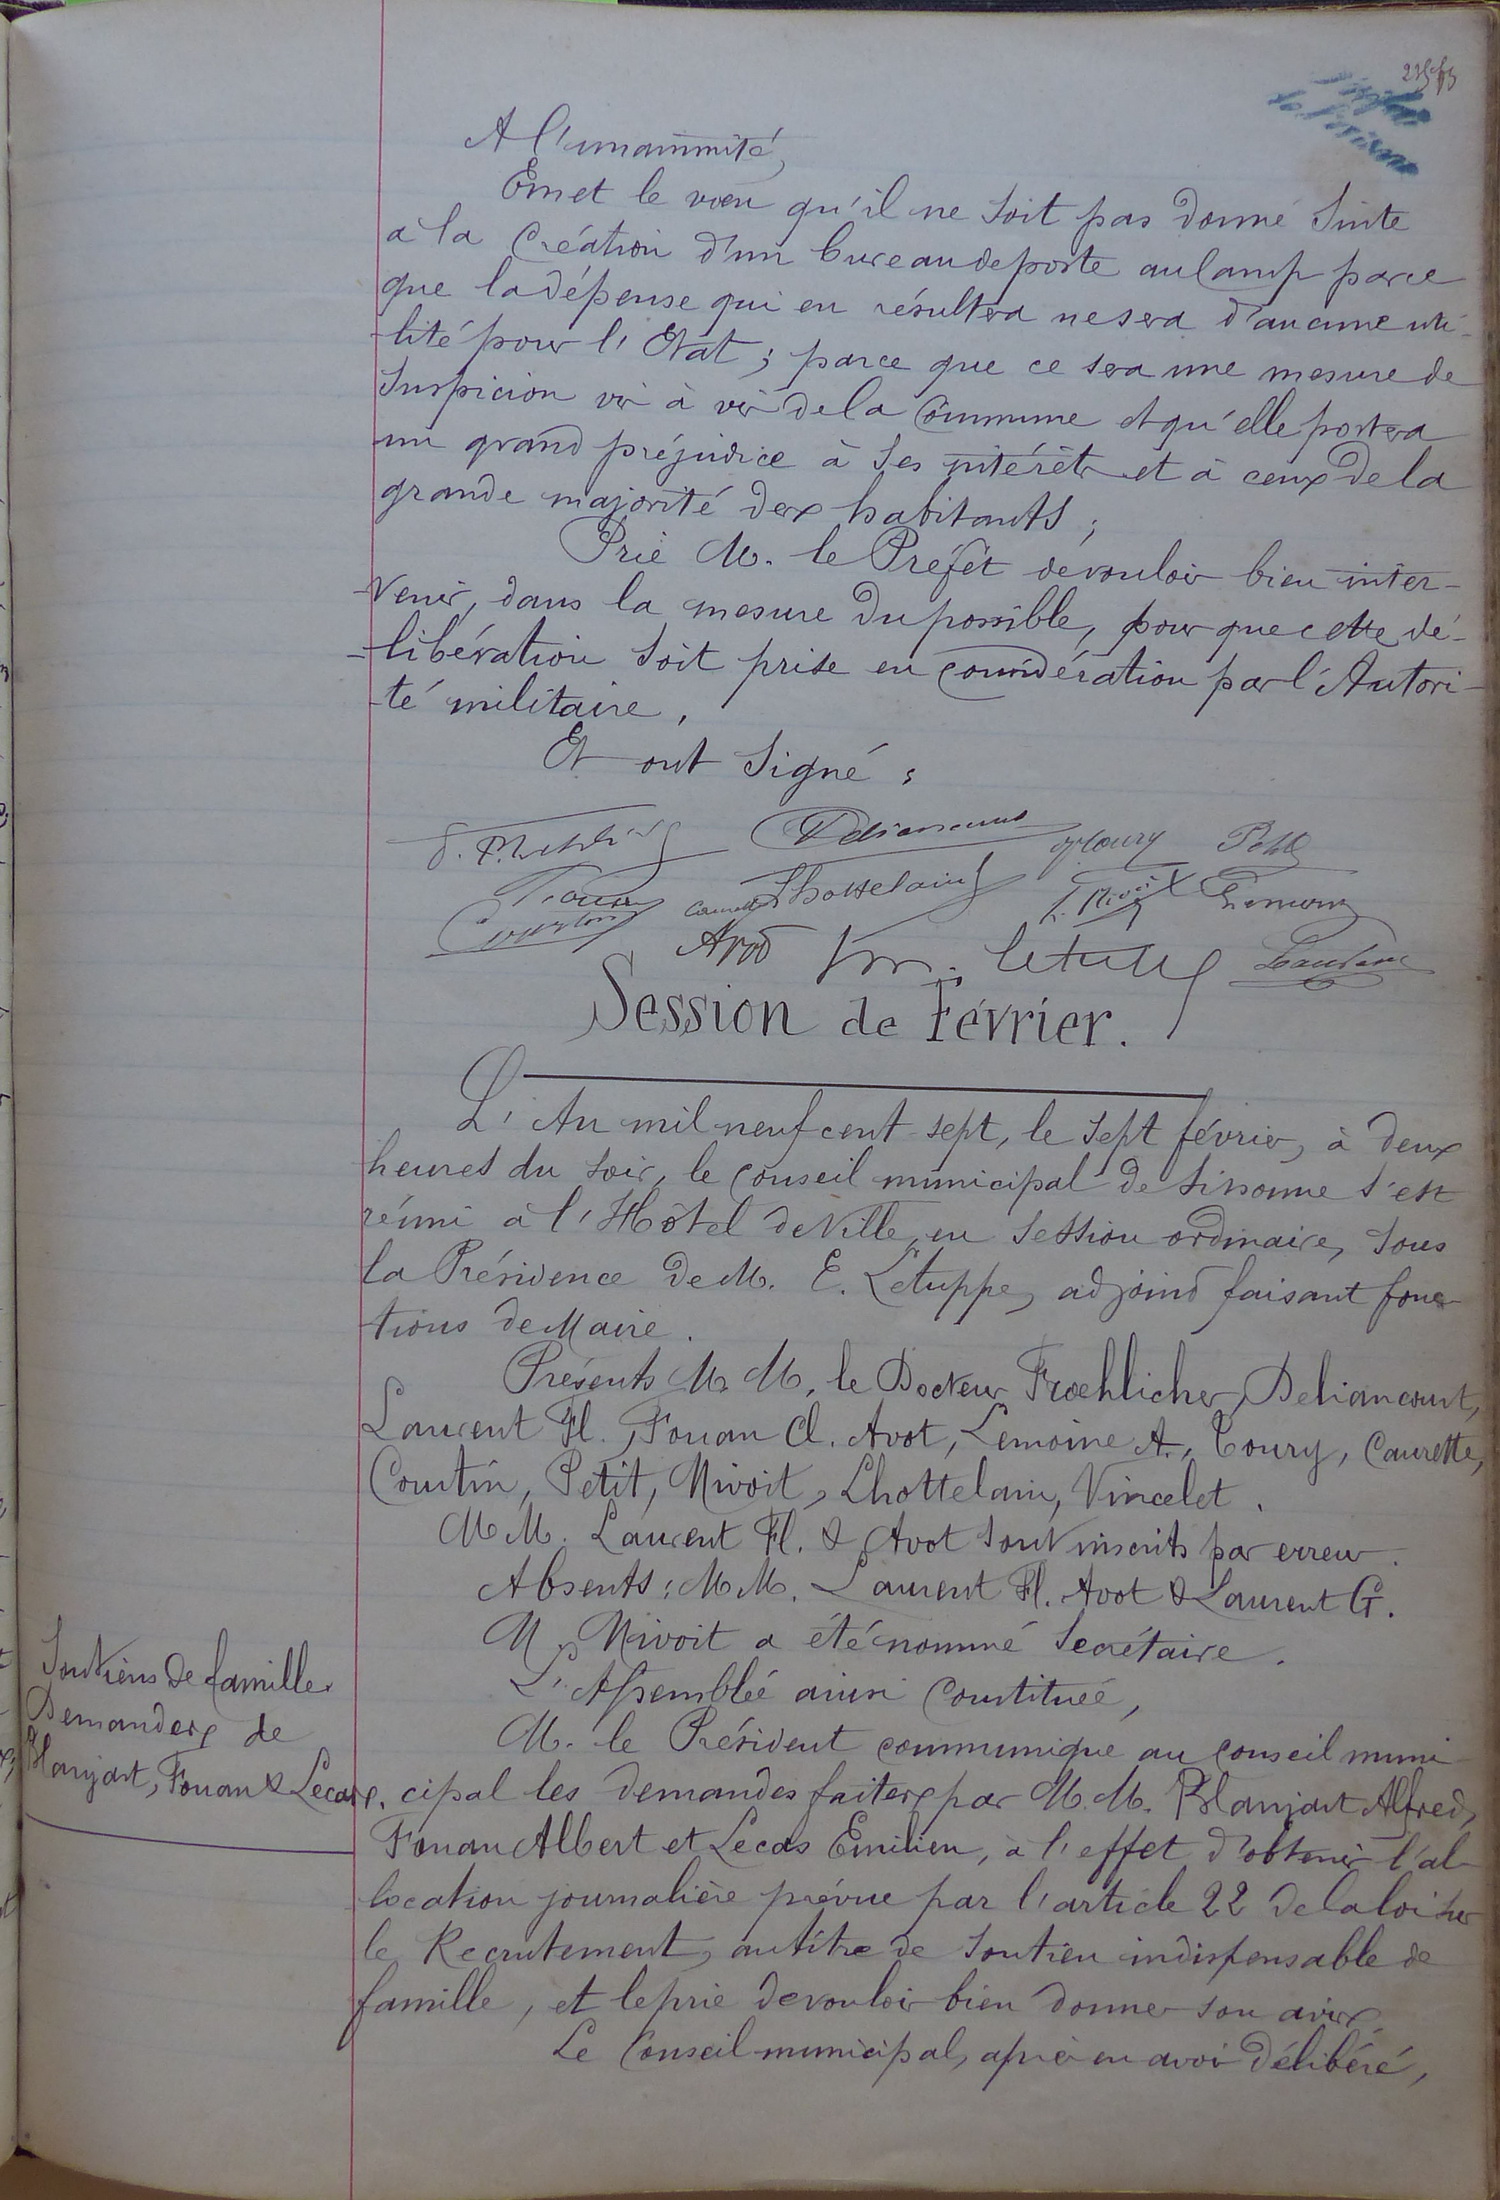 A l'unanimité,
Emet le vœu qu'il ne soit pas donné suite
à la Création d'un bureau de poste au Camp parce
que la dépense qui en résultera ne sera d'aucune uti-
-lité pour l'Etat ; parce que ce sera une mesure de
suspicion vis à vis de la Commune et qu'elle portera
un grand préjudice à ses intérêts et à ceux de la
grande majorité des habitants ;
Prie M. le Préfet de vouloir bien inter-
-venir, dans la mesure du possible, pour que cette dé-
-libération soit prise en considération par l'Autori-
-té militaire,
Et ont signé :
Deliancourt Toury Petit
Fouan Caurette Lhottelain L. Nivoit Lemoine
Courtin Avot Letuppe
Session de Février.
L'An mil neuf cent sept, le sept février, à deux
heures du soir, le Conseil municipal de Sissonne s'est
réuni à l'Hôtel de Ville, en session ordinaire, sous
la Présidence de M. E. Letuppe, adjoint faisant fonc-
tions de Maire.
Présents M. M. le Docteur Froehlicher, Deliancourt,
Laurent Fl., Fouan Cl. Avot, Lemoine A., Toury, Caurette,
Courtin, Petit, Nivoit, Lhottelain, Vincelet.
M M. Laurent Fl. & Avot sont inscrits par erreur.
Absents : M M. Laurent Fl. Avot & Laurent G.
M. Nivoit a été nommé Secrétaire.
L'Assemblée ainsi Constituée,
M. le Président communique au Conseil muni
cipal les demandes faites par M. M. Blanjart Alfred,
Fouan Albert et Lecas Emilien, à l'effet d'obtenir l'al-
location journalière prévue par l'article 22 de la loi sur
le Recrutement, au titre de soutien indispensable de
famille, et le prie de vouloir bien donner son avis.
Le Conseil municipal, après en avoir délibéré,
Soutiens de famille
Demandes de
Blanjart, Fouan & Lecas.